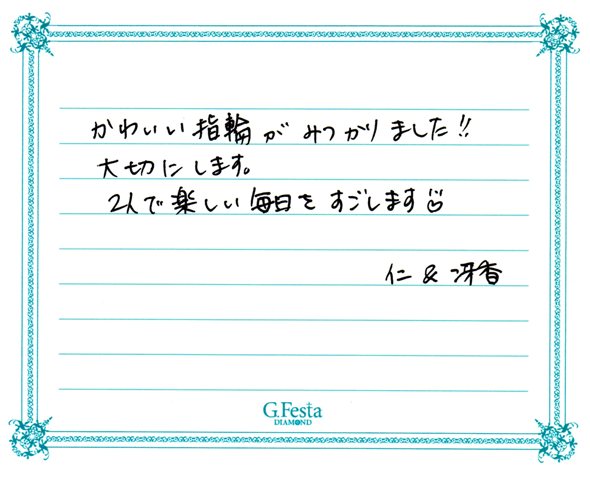 かわいい指輪がみつかりました!!
大切にします。
2人で楽しい毎日をすごします
仁 & 冴香
G.Festa
DIAMOND